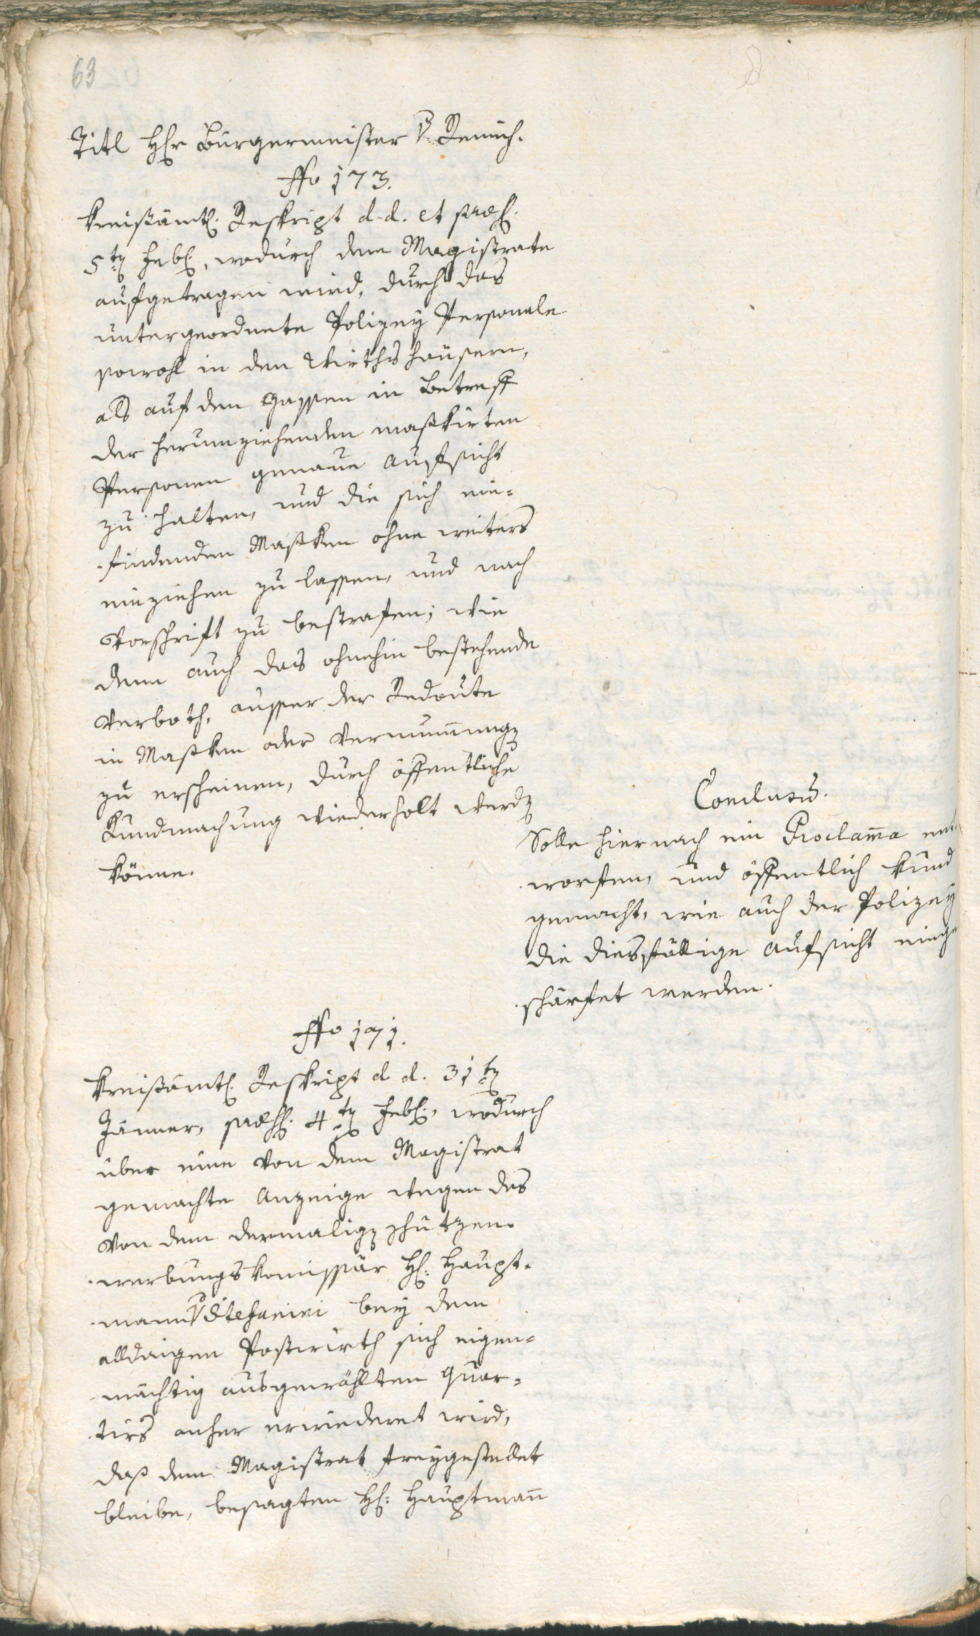 63
Titl Hr Bürgermeister v. Remich.
Nro 173.
Kreißämtl. Reskript d. d. et præs.
5ten Feb., wodurch dem Magistrate
aufgetragen wird, durch das
untergeordnete Polizey Personale
sowohl in den Wirthshäusern,
als auf den Gassen in Betreff
der herumziehenden maskirten
Personen genaue Aufsicht
zu halten, und die sich ein-
findenden Masken ohne weiters
einziehen zu lassen, und nach
Vorschrift zu bestrafen; wie
denn auch das ohnehin bestehende
Verboth, ausser der Redoute
in Masken oder Vermummung
zu erscheinen, durch öffentliche
Kundmachung wiederholt werden
könne.
Conclusum.
Solle hiernach ein Proclama ent
worfen, und öffentlich kund
gemacht, wie auch der Polizey
die diesfällige Aufsicht einge
schärfet werden.
Nro 171.
Kreißämtl. Reskript d. d. 31ten
Jänner, præs. 4ten Feb., wodurch
über eine von dem Magistrat
gemachte Anzeige wegen des
von dem dermaligen Schützen-
werbungskomissär H. Haupt-
mann v Stefanini bey dem
alldaigen Postwirth sich eigen-
mächtig ausgewählten Quar-
tirs anher erwiederet wird,
daß dem Magistrat freygestellet
bleibe, besagten H. Hauptmann